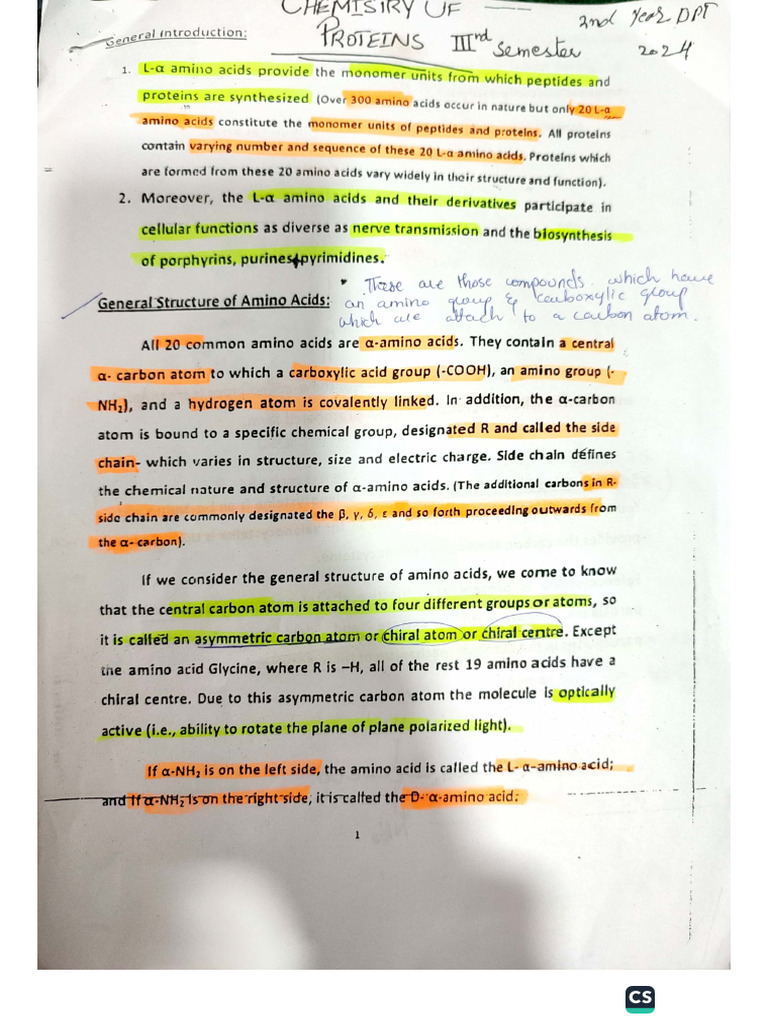 CHEMISTRY OF
2nd Year DPT
General Introduction:
PROTEINS IIIrd Semester 2024
1. L-α amino acids provide the monomer units from which peptides and
proteins are synthesized (Over 300 amino acids occur in nature but only 20 L-α
amino acids constitute the monomer units of peptides and proteins. All proteins
contain varying number and sequence of these 20 L-α amino acids. Proteins which
are formed from these 20 amino acids vary widely in their structure and function).
2. Moreover, the L-α amino acids and their derivatives participate in
cellular functions as diverse as nerve transmission and the biosynthesis
of porphyrins, purines+pyrimidines.
• These are those compounds which have
General Structure of Amino Acids: an amino group & carboxylic group
which are attach to a carbon atom.
All 20 common amino acids are α-amino acids. They contain a central
α- carbon atom to which a carboxylic acid group (-COOH), an amino group (-
NH₂), and a hydrogen atom is covalently linked. In addition, the α-carbon
atom is bound to a specific chemical group, designated R and called the side
chain- which varies in structure, size and electric charge. Side chain defines
the chemical nature and structure of α-amino acids. (The additional carbons in R-
side chain are commonly designated the β, γ, δ, ε and so forth proceeding outwards from
the α- carbon).
If we consider the general structure of amino acids, we come to know
that the central carbon atom is attached to four different groups or atoms, so
it is called an asymmetric carbon atom or chiral atom or chiral centre. Except
the amino acid Glycine, where R is –H, all of the rest 19 amino acids have a
chiral centre. Due to this asymmetric carbon atom the molecule is optically
active (i.e., ability to rotate the plane of plane polarized light).
If α-NH₂ is on the left side, the amino acid is called the L- α-amino acid;
and If α-NH₂ is on the right side, it is called the D- α-amino acid.
1
CS